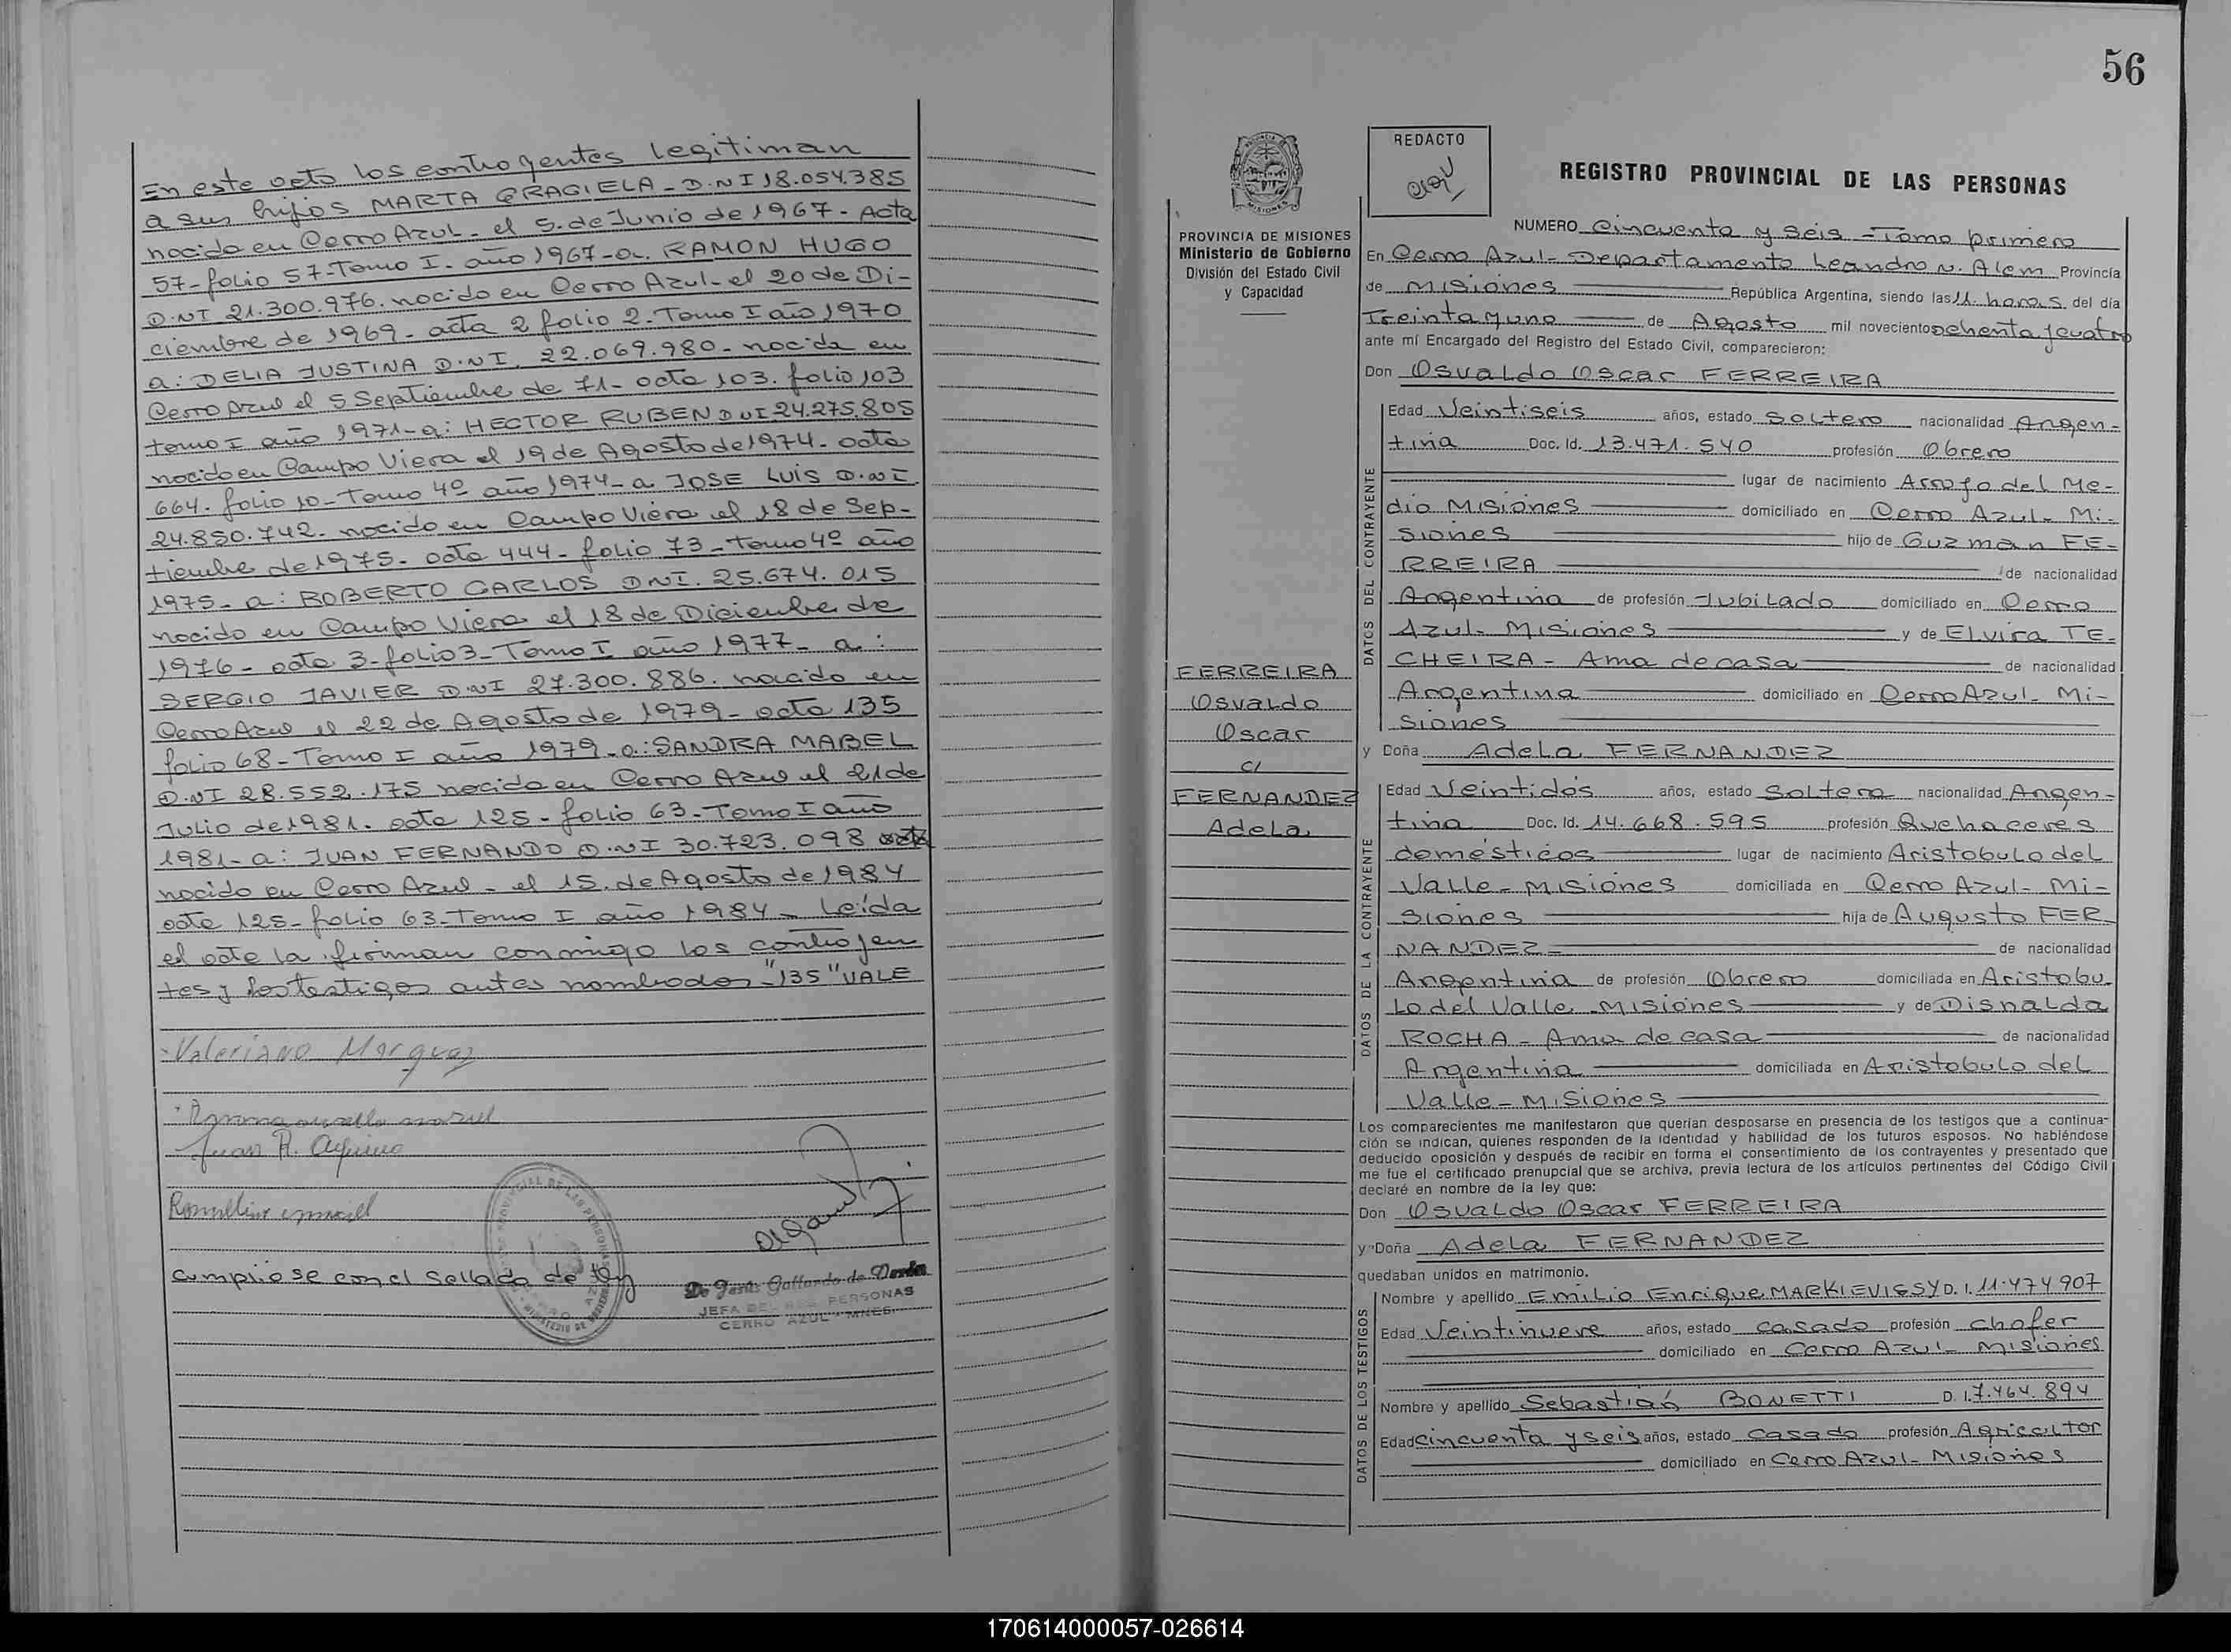 En este acto los contrayentes legitiman
a sus hijos MARTA GRACIELA - D.N.I 18.054.385
nacida en Cerro Azul - el 5. de Junio de 1967 - Acta
57 - folio 57 - Tomo I - año 1967 - a. RAMON HUGO
D.N.I 21.300.976. nacido en Cerro Azul - el 20 de Di-
ciembre de 1969 - acta 2 folio 2 - Tomo I año 1970
a: DELIA JUSTINA D.N.I. 22.069.980 - nacida en
Cerro Azul el 5 Septiembre de 71 - acta 103. folio 103
tomo I año 1971 - a: HECTOR RUBEN D.N.I 24.275.805
nacido en Campo Viera el 19 de Agosto de 1974 - acta
664. folio 10 - Tomo 4º año 1974 - a JOSE LUIS D.N.I.
24.850.742 - nacido en Campo Viera el 18 de Sep-
tiembre de 1975 - acta 444 - folio 73 - Tomo 4º año
1975 - a: ROBERTO CARLOS D.N.I. 25.674.015
nacido en Campo Viera el 18 de Diciembre de
1976 - acta 3 - folio 3 - Tomo I año 1977 - a:
SERGIO JAVIER D.N.I 27.300.886. nacido en
Cerro Azul el 22 de Agosto de 1979 - acta 135
folio 68 - Tomo I año 1979 - a: SANDRA MABEL
D.N.I 28.552.175 nacida en Cerro Azul el 21 de
Julio de 1981. acta 125 - folio 63 - Tomo I año
1981 - a: JUAN FERNANDO D.N.I 30.723.098
nacido en Cerro Azul - el 15. de Agosto de 1984
acta 125 - folio 63 - Tomo I año 1984 - Leída
el acta la firman conmigo los contrayen
tes y los testigos antes nombrados - "135" VALE
Valeriano Marquez
Juan R. Aquino
Cumpliose con el Sellado de Ley
De Jesús Gallardo de
JEFA DEL REG. PERSONAS
CERRO AZUL - MNES.
56
REDACTO
REGISTRO PROVINCIAL DE LAS PERSONAS
PROVINCIA DE MISIONES
Ministerio de Gobierno
División del Estado Civil
y Capacidad
FERREIRA
Osvaldo
Oscar
c/
FERNANDEZ
Adela
NUMERO Cincuenta y seis - Tomo primero
En Cerro Azul - Departamento Leandro N. Alem Provincia
de Misiones República Argentina, siendo las 11. horas. del día
Treinta y uno de Agosto mil novecientos ochenta y cuatro
ante mí Encargado del Registro del Estado Civil, comparecieron:
Don Osvaldo Oscar FERREIRA
DATOS DEL CONTRAYENTE
Edad Veintiseis años, estado Soltero nacionalidad Argen-
tina Doc. Id. 13.471.540 profesión Obrero
lugar de nacimiento Arroyo del Me-
dio Misiones domiciliado en Cerro Azul - Mi-
siones hijo de Guzman FE-
RREIRA de nacionalidad
Argentina de profesión Jubilado domiciliado en Cerro
Azul - Misiones y de Elvira TE-
CHEIRA - Ama de casa de nacionalidad
Argentina domiciliado en Cerro Azul - Mi-
siones
y Doña Adela FERNANDEZ
DATOS DE LA CONTRAYENTE
Edad Veintidós años, estado Soltera nacionalidad Argen-
tina Doc. Id. 14.668.595 profesión Quehaceres
domésticos lugar de nacimiento Aristobulo del
Valle - Misiones domiciliada en Cerro Azul - Mi-
siones hija de Augusto FER-
NANDEZ - de nacionalidad
Argentina de profesión Obrero domiciliada en Aristobu-
lo del Valle - Misiones y de Disnalda
ROCHA - Ama de casa de nacionalidad
Argentina domiciliada en Aristobulo del
Valle - Misiones
Los comparecientes me manifestaron que querían desposarse en presencia de los testigos que a continua-
ción se indican, quienes responden de la identidad y habilidad de los futuros esposos. No habiéndose
deducido oposición y después de recibir en forma el consentimiento de los contrayentes y presentado que
me fue el certificado prenupcial que se archiva, previa lectura de los artículos pertinentes del Código Civil
declaré en nombre de la ley que:
Don Osvaldo Oscar FERREIRA
y Doña Adela FERNANDEZ
quedaban unidos en matrimonio.
DATOS DE LOS TESTIGOS
Nombre y apellido Emilio Enrique MARKIEVICSY D. I. 11.474 907
Edad Veintinueve años, estado casado profesión chofer
domiciliado en Cerro Azul - Misiones
Nombre y apellido Sebastián BONETTI D. I. 7.464.894
Edad cincuenta y seis años, estado casado profesión Agricultor
domiciliado en Cerro Azul - Misiones
170614000057-026614